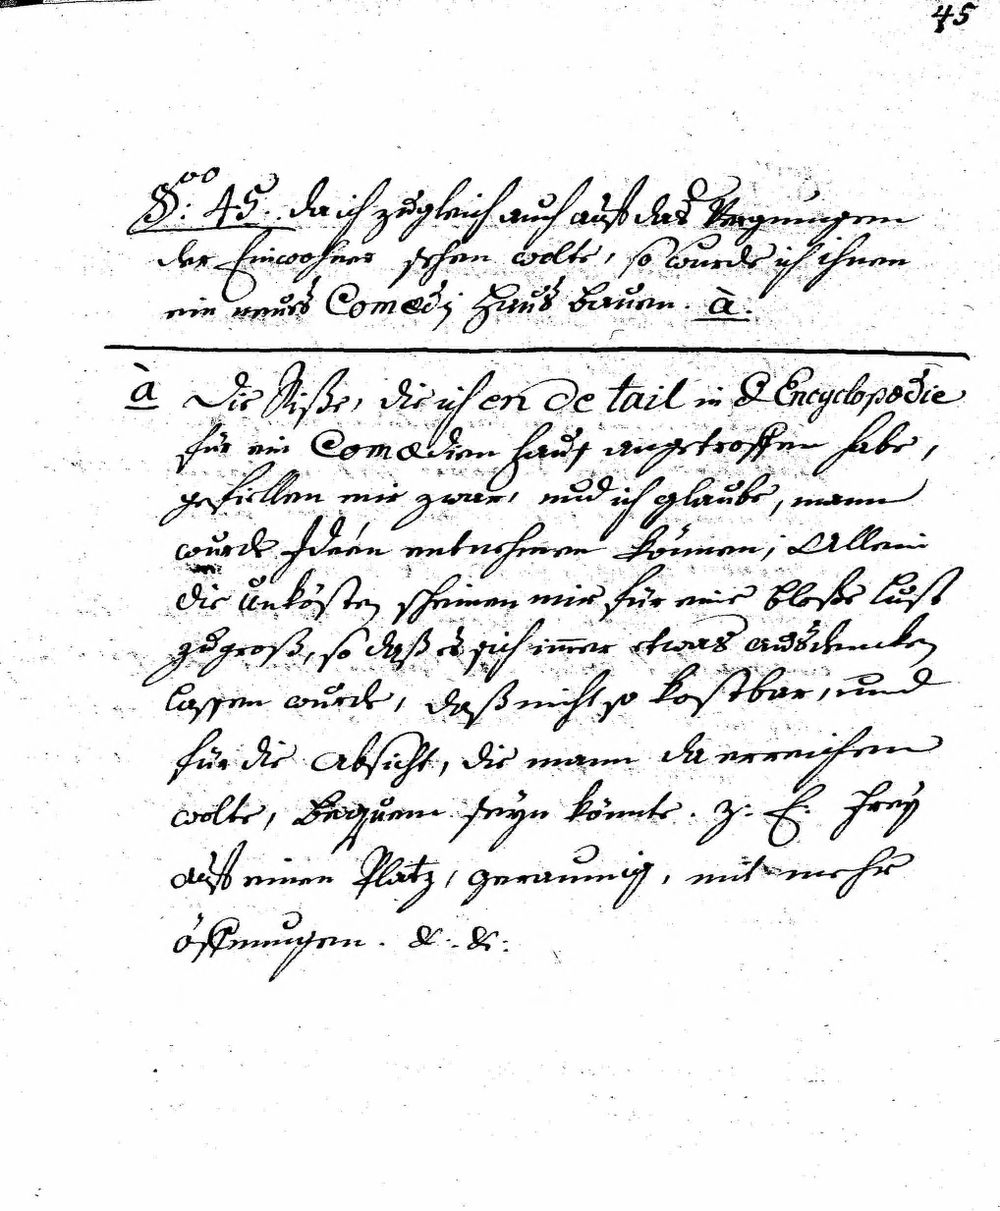 45
§.oo 45. da ich zugleich auch auß das Vergnuugen
der Einwohner sehen wolte, so wurde ich ihnen
ein neues Comœdj Hauß bauen. à.
à Die Riße, die ich en de tail in d Encyclopœdie
für ein Comœdien Hauß angetroffen habe,
gefiellen mir zwar, und ich glaube, mann
wurde Ideén entnehmen können; Allein
die Unkösten scheinen mir für eine bloße Lust
zu groß, so daß es sich immer etwas ausdencken
lassen wurde, daß nicht so kostbar, und
für die Absicht, die mann da erreichen
wolte, bequem seyn könnte. z: E: frey
auß einen Platz, geraumig, mit mehr
öffnungen. &. &: